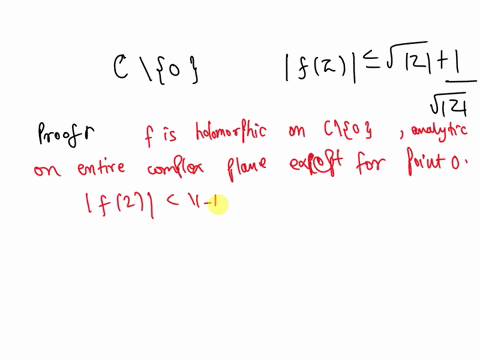 C \ {0} |f(z)| ≤ √|z| + 1/√|z|
Proof r f is holomorphic on C\{0}, analytic
on entire complex plane except for point 0.
|f(z)| <